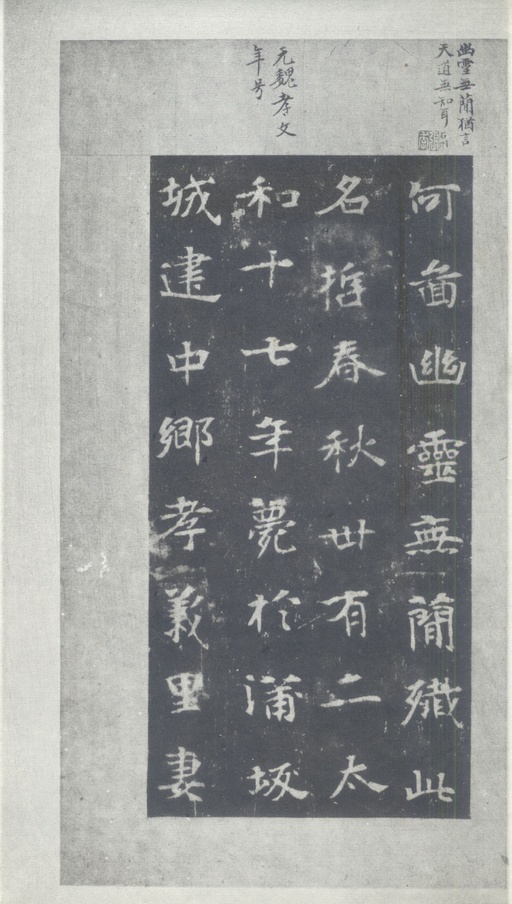 幽霊無蕳猶言
天道無知耳
元魏孝文
年号
何啚幽靈無蕳殲此
名哲春秋卅有二太
和十七年薨於蒲坂
城建中鄉孝義里妻